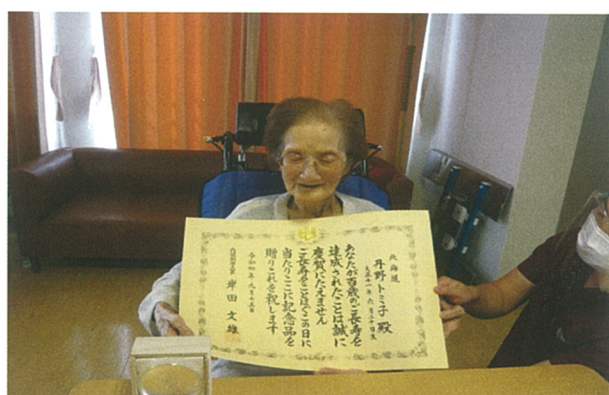 北海道
丹野トミ子殿
大正十一年六月二十日生
あなたが百歳のご長寿を
達成されたことは誠に
慶賀にたえません
ご長寿をことほぐこの日に
当たりここに記念品を
贈りこれを祝します
令和四年九月十五日
内閣総理大臣 岸田文雄